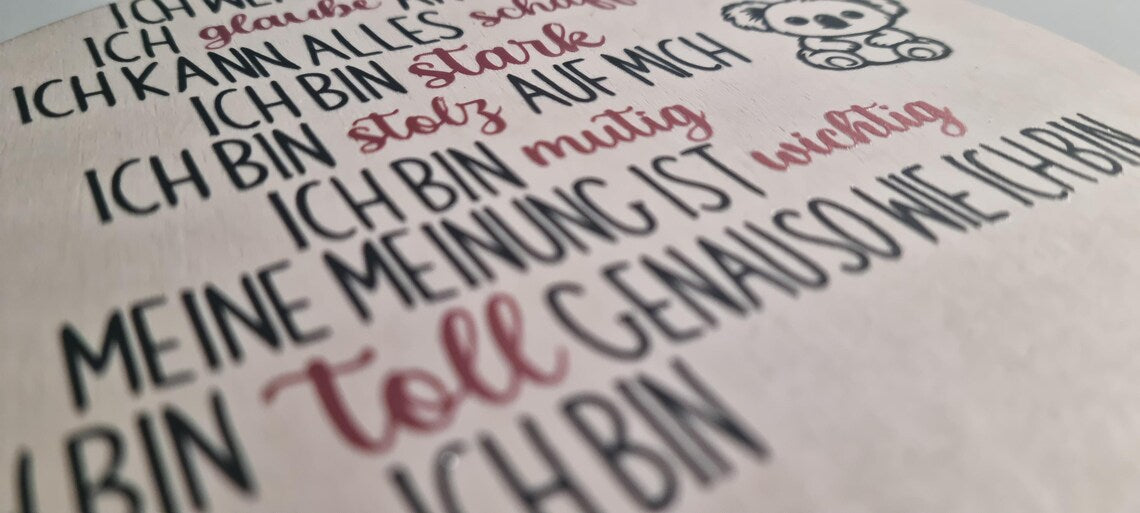 ICH
ICH glaube
ICH KANN ALLES
ICH BIN stark
ICH BIN stolz AUF MICH
ICH BIN mutig
MEINE MEINUNG IST wichtig
BIN toll GENAUSO WIE ICH BIN
ICH BIN